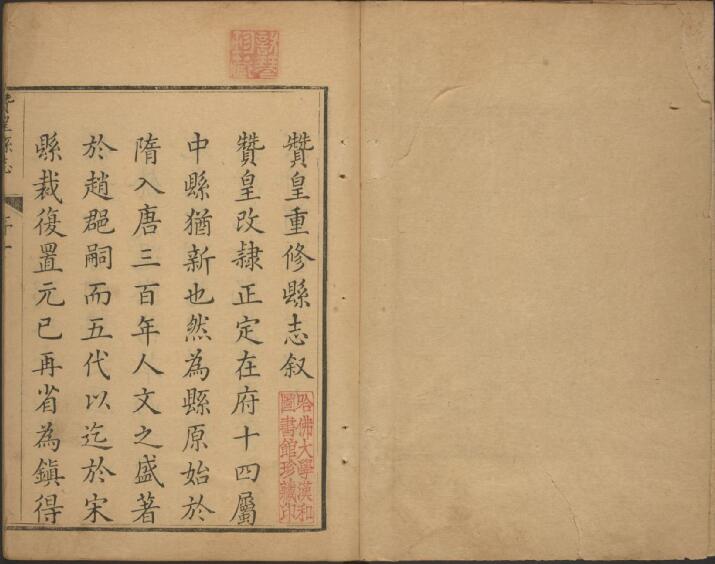 贊皇重修縣志叙
贊皇改隸正定在府十四屬
中縣猶新也然為縣原始於
隋入唐三百年人文之盛著
於趙郡嗣而五代以迄於宋
縣裁復置元已再省為鎮得
哈佛大學漢和
圖書館珍藏印
贊皇縣志